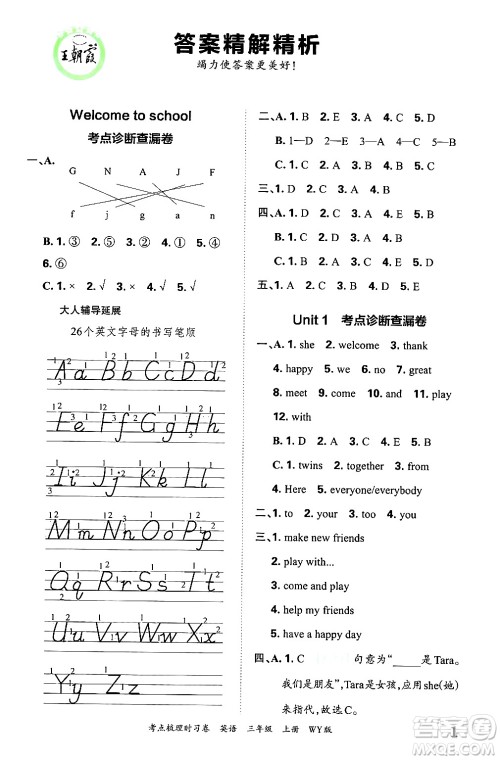 王朝霞
答案精解精析
竭力使答案更美好!
Welcome to school
考点诊断查漏卷
一、A.
G N A J F
f j g a n
B. 1. ③ 2. ⑤ 3. ② 4. ① 5. ④
6. ⑥
C. 1. × 2. √ 3. × 4. √ 5. √
大人辅导延展
26个英文字母的书写笔顺
Aa Bb Cc Dd
Ee Ff Gg Hh
Ii Jj Kk Ll
Mm Nn Oo Pp
Qq Rr Ss Tt
Uu Vv Ww Xx
Yy Zz
二、A. 1. B 2. D 3. E 4. C 5. A
B. 1—D 2—E 3—A 4—C 5—B
C. 1. A 2. C 3. A 4. C 5. D
三、1. D 2. C 3. A 4. E 5. B
四、A. 1. D 2. A 3. C 4. B 5. E
B. 1. D 2. B 3. A 4. C 5. E
五、1. D 2. A 3. B 4. C 5. E
Unit 1 考点诊断查漏卷
一、A. 1. she 2. welcome 3. thank
4. happy 5. yes 6. no 7. great
8. meet 9. come 10. and 11. play
12. with
B. 1. C 2. B 3. A 4. B 5. A
C. 1. twins 2. together 3. from
4. Here 5. everyone/everybody
二、1. to 2. your 3. to 4. in 5. on
三、1. make new friends
2. play with...
3. come and play
4. help my friends
5. have a happy day
四、A. 1. C 句意为“____是Tara。
我们是朋友”,Tara是女孩,应用she(她)
来指代,故选C。
考点梳理时习卷 英语 三年级 上册 WY版
1